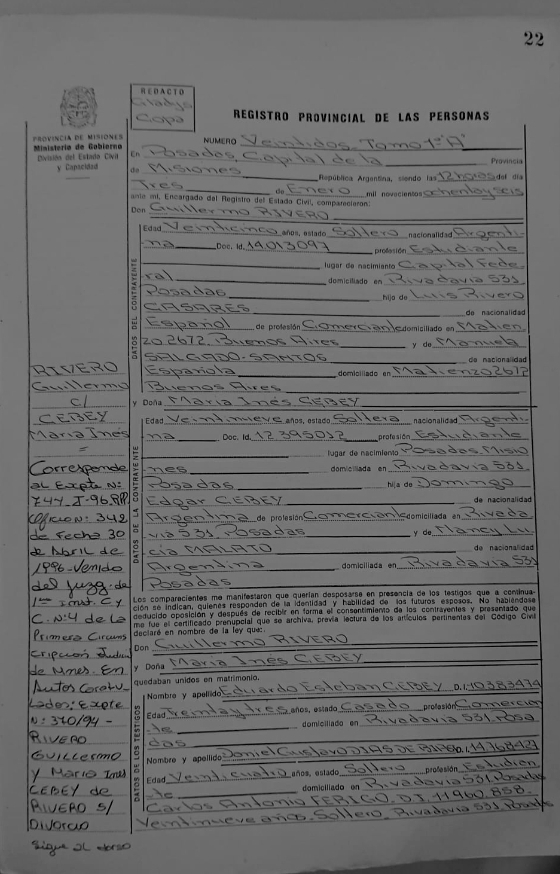 22
REDACTO
Gladys
Copa
REGISTRO PROVINCIAL DE LAS PERSONAS
PROVINCIA DE MISIONES
Ministerio de Gobierno
División del Estado Civil
y Capacidad
NUMERO Veintidos-Tomo 1º "A"
En Posadas Capital de la Provincia
de Misiones República Argentina, siendo las 12 horas del día
Tres de Enero mil novecientos ochentayseis
ante mí, Encargado del Registro del Estado Civil, comparecieron:
Don Guillermo RIVERO
DATOS DEL CONTRAYENTE
Edad Veinticinco años, estado Soltero nacionalidad Argenti-
na Doc. Id. 14013097 profesión Estudiante
lugar de nacimiento Capital Fede-
ral domiciliado en Rivadavia 531
Posadas hijo de Luis Rivero
CASARES de nacionalidad
Español de profesión Comerciante domiciliado en Matien
zo 2672. Buenos Aires y de Manuela
SALGADO-SANTOS de nacionalidad
Española domiciliado en Matienzo 2672
Buenos Aires
y Doña María Inés CEBEY
DATOS DE LA CONTRAYENTE
Edad Veintinueve años, estado Soltera nacionalidad Argenti-
na Doc. Id. 12395012 profesión Estudiante
lugar de nacimiento Posadas Misio
nes domiciliada en Rivadavia 531
Posadas hija de Domingo
Edgar CEBEY de nacionalidad
Argentina de profesión Comerciante domiciliado en Rivada
via 531 Posadas y de Nancy Lu
cía MALATO de nacionalidad
Argentina domiciliada en Rivadavia 531
Posadas
Los comparecientes me manifestaron que querían desposarse en presencia de los testigos que a continua-
ción se indican, quienes responden de la identidad y habilidad de los futuros esposos. No habiéndose
deducido oposición y después de recibir en forma el consentimiento de los contrayentes y presentado que
me fue el certificado prenupcial que se archiva, previa lectura de los artículos pertinentes del Código Civil
declaré en nombre de la ley que:
Don Guillermo RIVERO
y Doña María Inés CEBEY
quedaban unidos en matrimonio.
DATOS DE LOS TESTIGOS
Nombre y apellido Eduardo Esteban CEBEY D.I. 10383474
Edad Treintaytres años, estado Casado profesión Comercian
te domiciliado en Rivadavia 531, Posa
das
Nombre y apellido Daniel Gustavo DIAS DE
Edad Veinticuatro años, estado Soltero profesión Estudian
te domiciliado en Rivadavia 531, Posadas
Carlos Antonio FERIGO D.I. 11960.858
Veintinueve años Soltero, Rivadavia 531, Posadas
RIVERO
Guillermo
c/
CEBEY
María Inés
=
Corresponde
al Expte Nº
744-J-96.RPP
Oficio Nº: 342
de Fecha 30
de Abril de
1996-Venido
del Juzg. de
1era Inst. C y
C. Nº 4 de la
Primera Circuns
cripción Judicial
de Mnes. En
Autos Caratu-
lados: Expte
Nº: 370/94 -
RIVERO
GUILLERMO
y María Inés
CEBEY de
RIVERO S/
Divorcio
Sigue al dorso